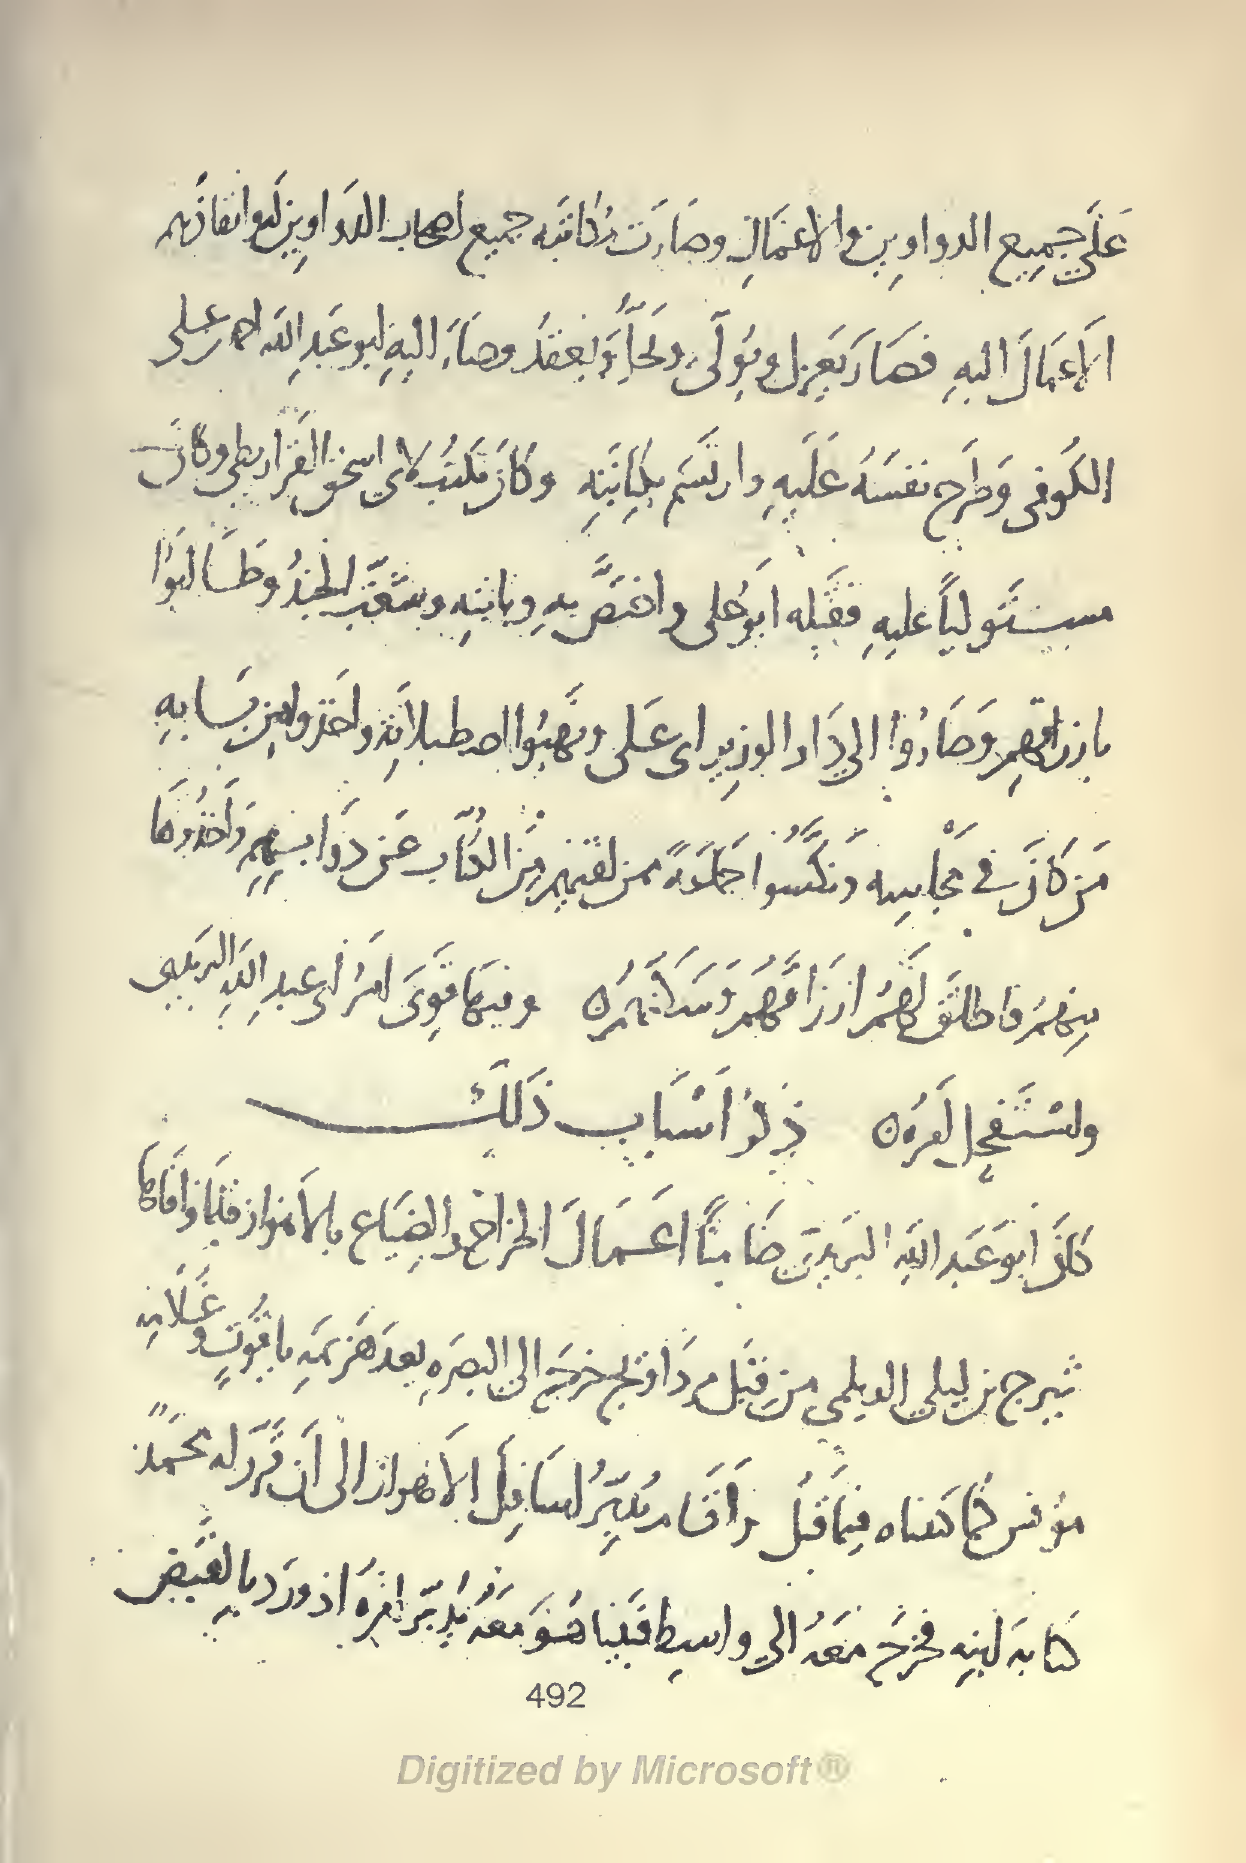 على جميع الدواوين والاعمال وصارت مكاتبه جميع اصحاب الدواوين
الاعمال اليه فصار يعزل ويولى ويحل ويعقد وصار اليه ابو عبد الله احمد بن على
الكوفى وطرح نفسه عليه وارتسم بكتابته وكان يكتب لابى اسحق القراريطى وكان
مستوليا عليه فقبله ابو على واختص به وشغب الجند وطالبوا
بارزاقهم وصاروا الى دار الوزير ابى على ونهبوا اصطبلاته واخذوا من ثيابه
من كان فى مجلسه ونكسوا جماعة ممن لقيهم من الكتاب عن دوابهم واخذوها
منهم فاطلق لهم ارزاقهم وسكنهم ه وفيها قوى امر ابى عبد الله البريدى
واستفحل امره ه ذكر اسباب ذلك
كان ابو عبد الله البريدى ضامنا اعمال الخراج والضياع بالاهواز فلما وافاها
شيرج بن ليلى الديلمى من قبل مرداويج خرج الى البصره بعد هزيمه ياقوت وغلمانه
مؤنس كما كتبناه فيما قبل واقام يدبر اسافل الاهواز الى ان قرر له محمد
كتابة ابنه فخرج معه الى واسط فبينا هو معه يدبر امره اذ ورد بالقبض
492
Digitized by Microsoft®